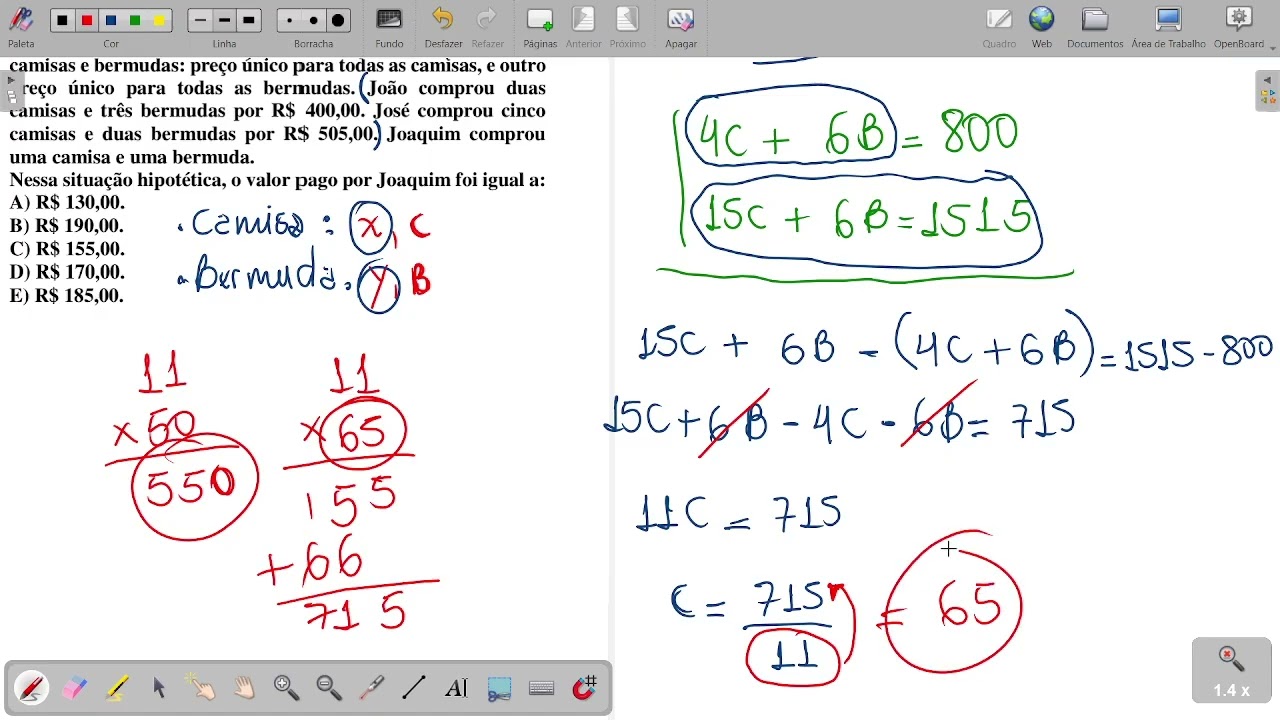 Paleta Cor Linha Borracha Fundo Desfazer Refazer Páginas Anterior Próximo Apagar Quadro Web Documentos Área de Trabalho OpenBoard
camisas e bermudas: preço único para todas as camisas, e outro
preço único para todas as bermudas. (João comprou duas
camisas e três bermudas por R$ 400,00. José comprou cinco
camisas e duas bermudas por R$ 505,00.) Joaquim comprou
uma camisa e uma bermuda.
Nessa situação hipotética, o valor pago por Joaquim foi igual a:
A) R$ 130,00.
B) R$ 190,00.
C) R$ 155,00.
D) R$ 170,00.
E) R$ 185,00.
. Camisa : x, C
. Bermuda. y, B
11
x 50
550
11
x 65
155
+ 66
715
4C + 6B = 800
15C + 6B = 1515
15C + 6B - (4C + 6B) = 1515 - 800
15C + 6B - 4C - 6B = 715
11C = 715
C = 715 = 65
11
1.4 x